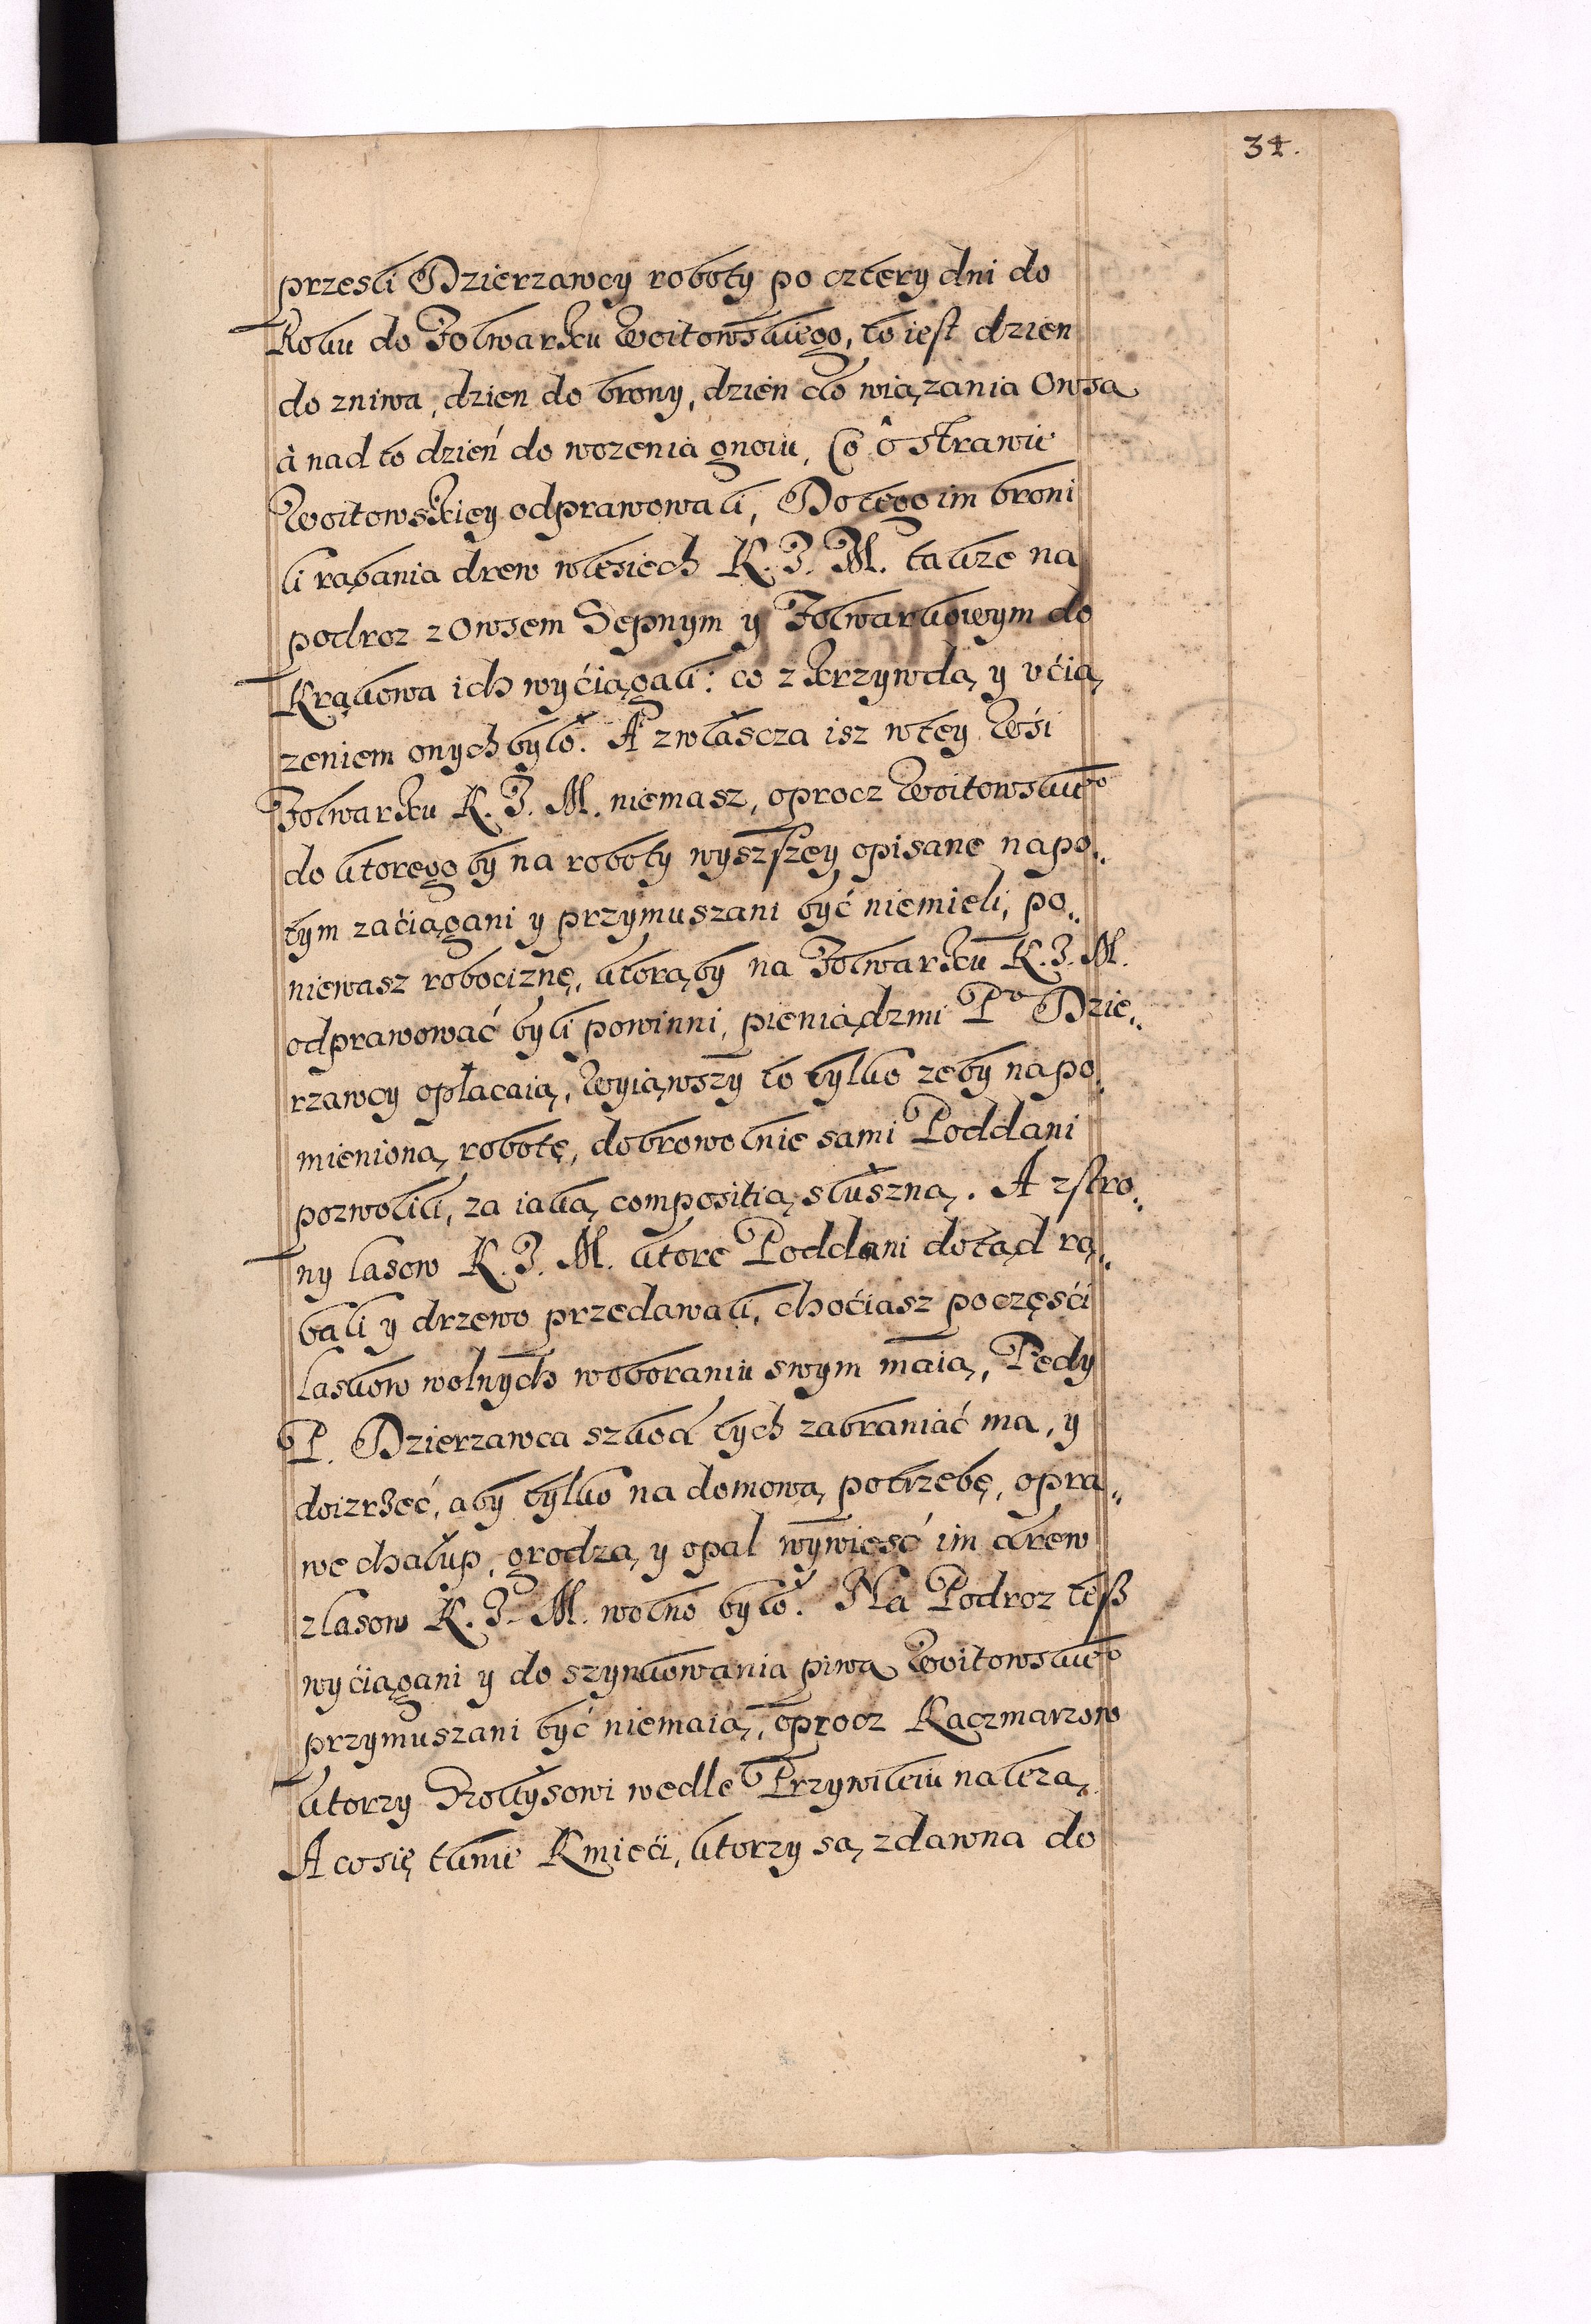 34.
przesli Dzierzawcy roboty po cztery dni do
Roku do Folwarku Woitowskiego, to iest dzien
do zniwa, dzien do brony, dzien do wiązania Owsa
à nad to dzień do wozenia gnoiu, Co ô strawie
Woitowskiey odprawowali, Do tego im broni
li rąbania drew wlesiech K. J. M. takze na
podroz z Owsem Sepnym y Folwarkowym do
Krąkowa ich wyćiągali: co z krzywdą y vćią,
zeniem onych było. A zwłascza isz wtey Wśi
Folwarku K. J. M. niemasz, oprocz Woitowskie°
do ktorego by na roboty wyszszey opisane napo„
tym zaćiągani y przymuszani być niemieli, po„
niewasz robociznę, ktorą by na Folwarku K. J. M.
odprawować byli powinni, pieniądzmi P° Dzie„
rzawcy opłacaią, Wyiąwszy to tylko zeby napo„
mienioną robotę, dobrowolnie sami Poddani
pozwolili, za iaką compositią słuszną. A zstro„
ny lasow K. J. M. ktore Poddani dotąd rą„
bali y drzewo przedawali, choćiasz poczęsći
laskow wolnych woboraniu swym maią, Tedy
P. Dzierzawca szkod tych zabraniać ma, y
doizrzeć, aby tylko na domową potrzebę, opra„
we chałup, grodzą y opal wywiesć im drew
zlasow K. J. M. wolno było. Na Podroz tesz
wyćiągani y do szynkowania piwa Woitowskie°
przymuszani być niemaią, oprocz Kaczmarzow
ktorzy Szołtysowi wedle Przywileiu nalezą,
A cosię tknie Kmieći, ktorzy są zdawna do